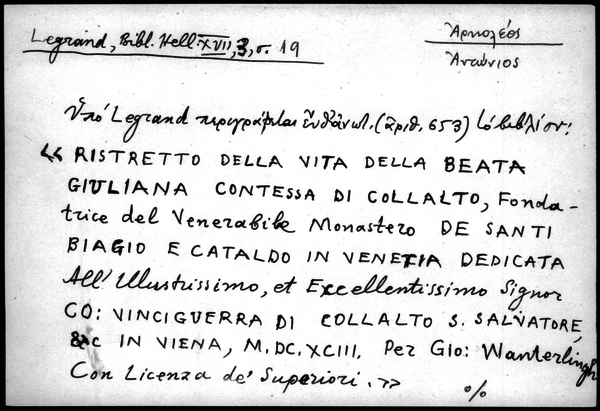 Legrand, Bibl. Hell. XVII, 3, σ. 19
Ἀρκολέός
Ἀντώνιος
Ὑπό Legrand περιγράφεται ἐνθάνωτ. (ἀριθ. 653) τό βιβλίον:
« RISTRETTO DELLA VITA DELLA BEATA
GIULIANA CONTESSA DI COLLALTO, Fonda-
trice del Venerabile Monastero DE SANTI
BIAGIO E CATALDO IN VENETIA DEDICATA
All' Illustrissimo, et Excellentissimo Signor
CO: VINCIGUERRA DI COLLALTO S. SALVATORE,
&c IN VIENA, M.DC.XCIII. Per Gio: Wanterlingh
Con Licenza de' Superiori. »
%